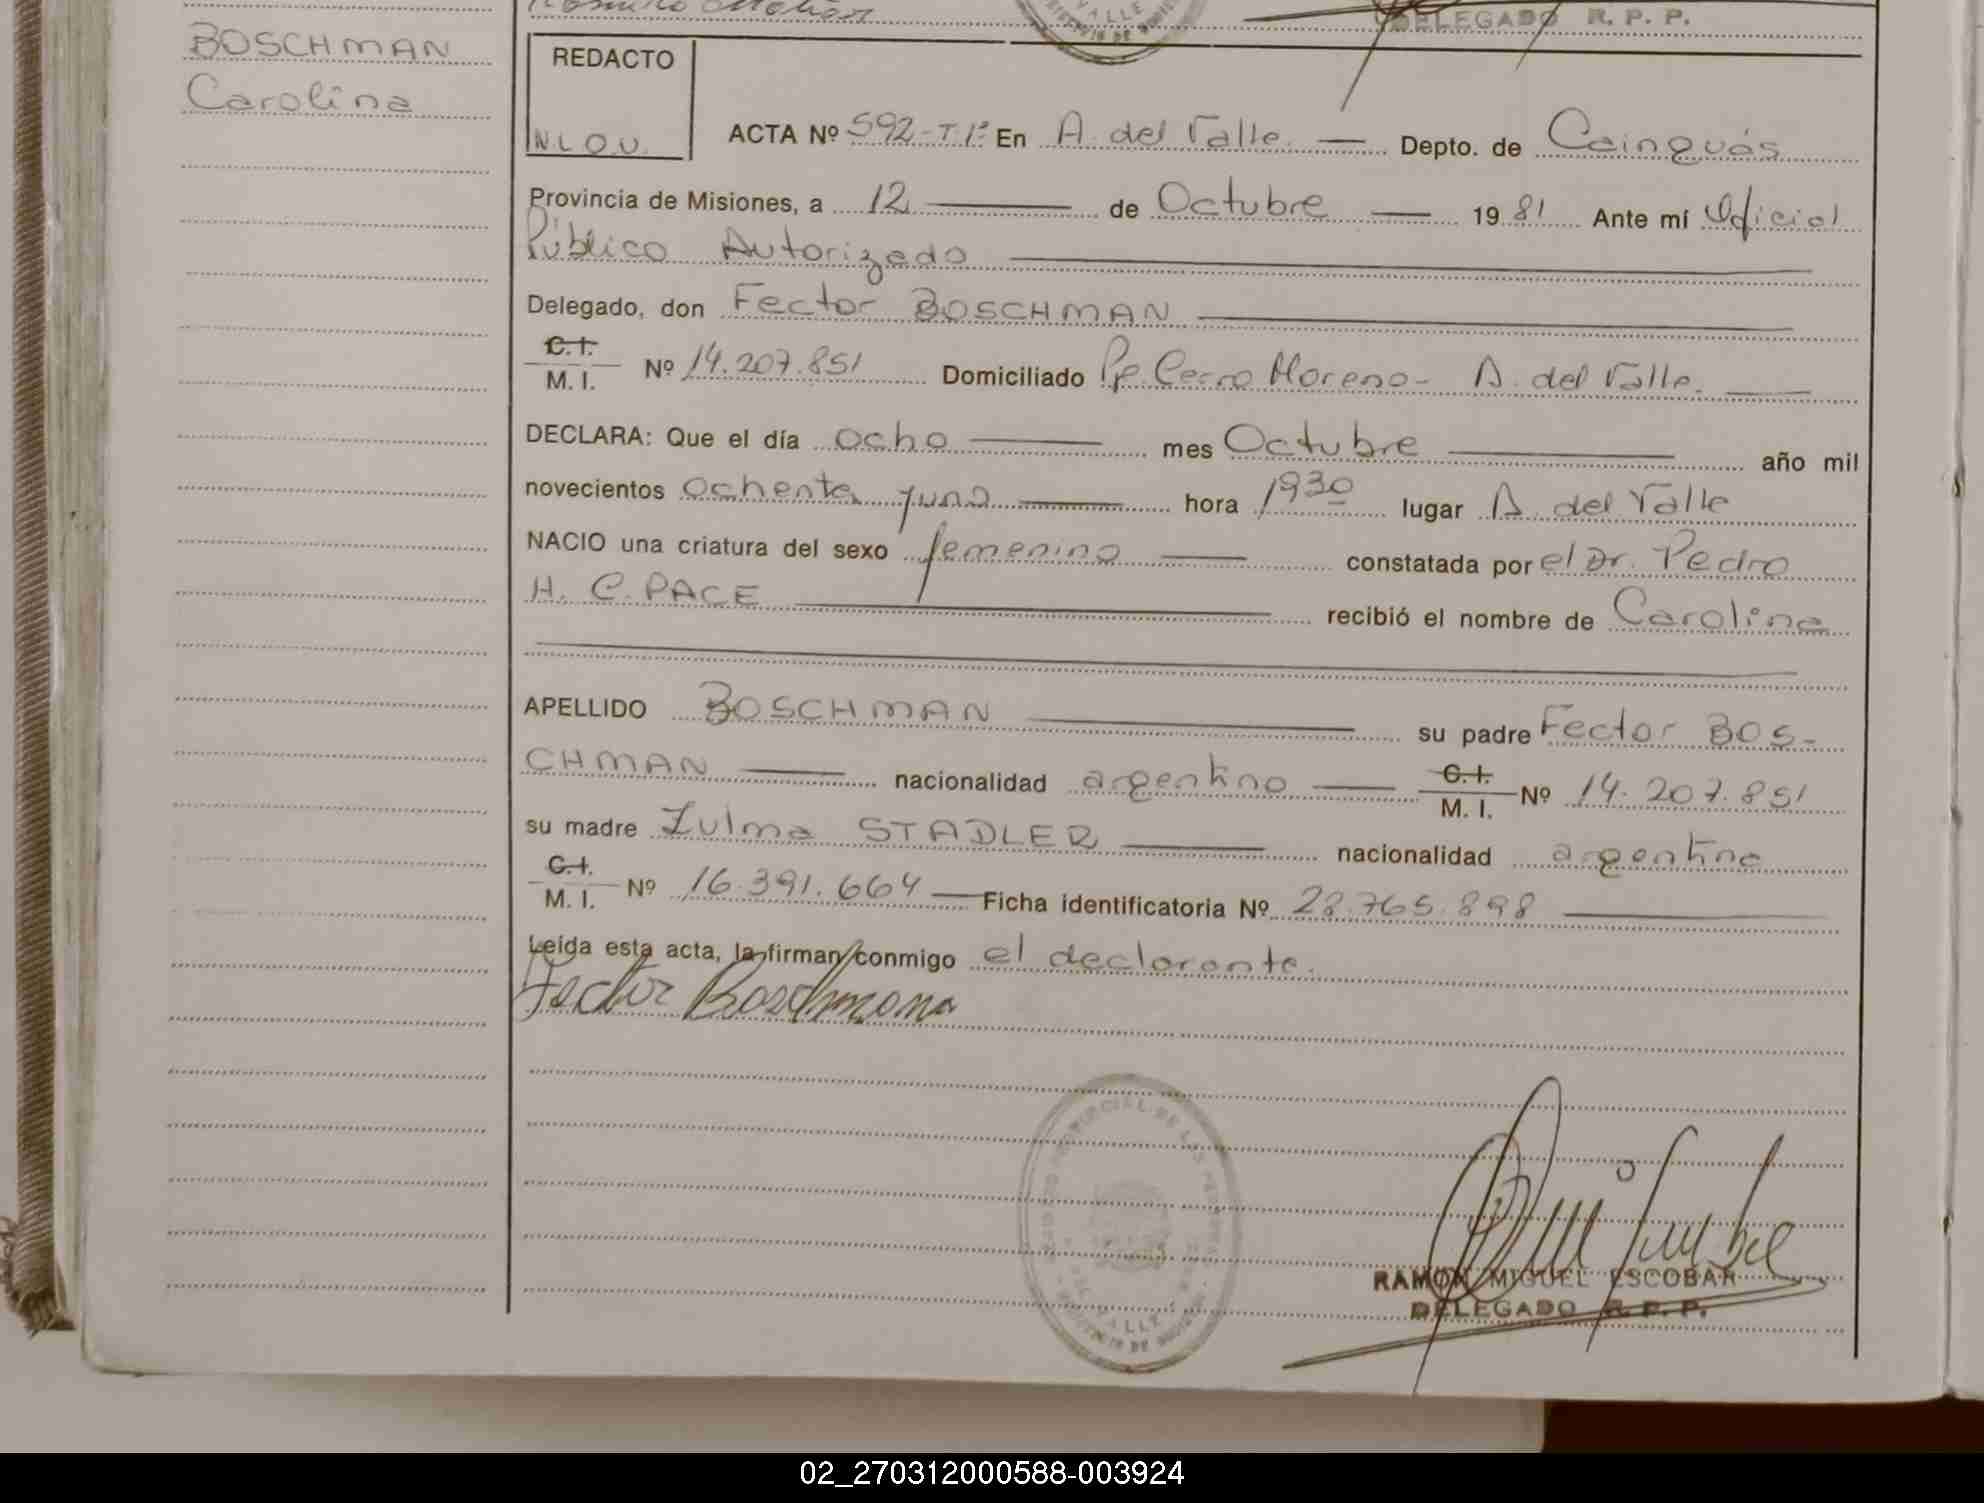 DELEGADO R. P. P.
BOSCHMAN
Carolina
REDACTO
N.L.O.V.
ACTA Nº 592-T.1º En A. del Valle. Depto. de Cainguás
Provincia de Misiones, a 12 de Octubre 19 81 Ante mí Oficial
Público Autorizado
Delegado, don Fector BOSCHMAN
C. I.
M. I. Nº 14.207.851 Domiciliado Pje. Cerro Moreno - A. del Valle.
DECLARA: Que el día ocho mes Octubre año mil
novecientos ochenta yuno hora 1930 lugar A. del Valle
NACIO una criatura del sexo femenino constatada por el Dr. Pedro
H. C. PACE recibió el nombre de Carolina
APELLIDO BOSCHMAN su padre Fector BOS-
CHMAN nacionalidad argentino C. I. M. I. Nº 14.207.851
su madre Zulma STADLER nacionalidad argentina
C. I.
M. I. Nº 16.391.664 Ficha identificatoria Nº 28.765.898
Leída esta acta, la firman conmigo el declarante.
Fector Boschmann
RAMON MIGUEL ESCOBAR
DELEGADO R. P. P.
02_270312000588-003924